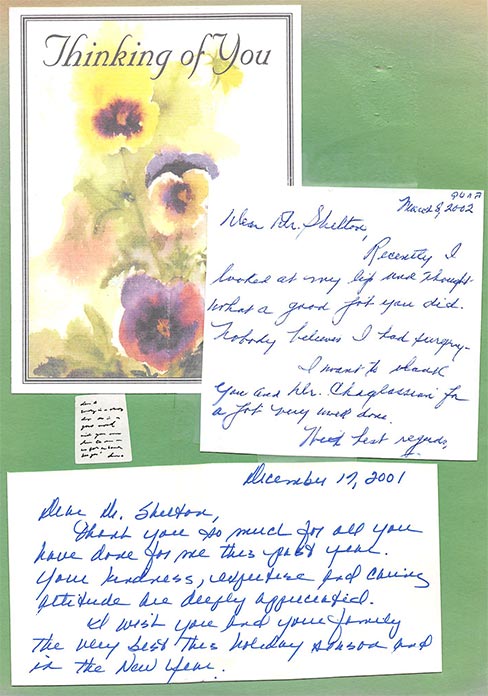 Thinking of You
March 8, 2002
Dear Dr. Shelton,
Recently I
looked at my lip and thought
what a good job you did.
Nobody believes I had surgery-
I want to thank
you and Dr. Chaglassian for
a job very well done.
With best regards,
December 17, 2001
Dear Dr. Shelton,
Thank you so much for all you
have done for me this past year.
Your kindness, expertise and caring
attitude are deeply appreciated.
I wish you and your family
the very best this holiday season and
in the New Year.